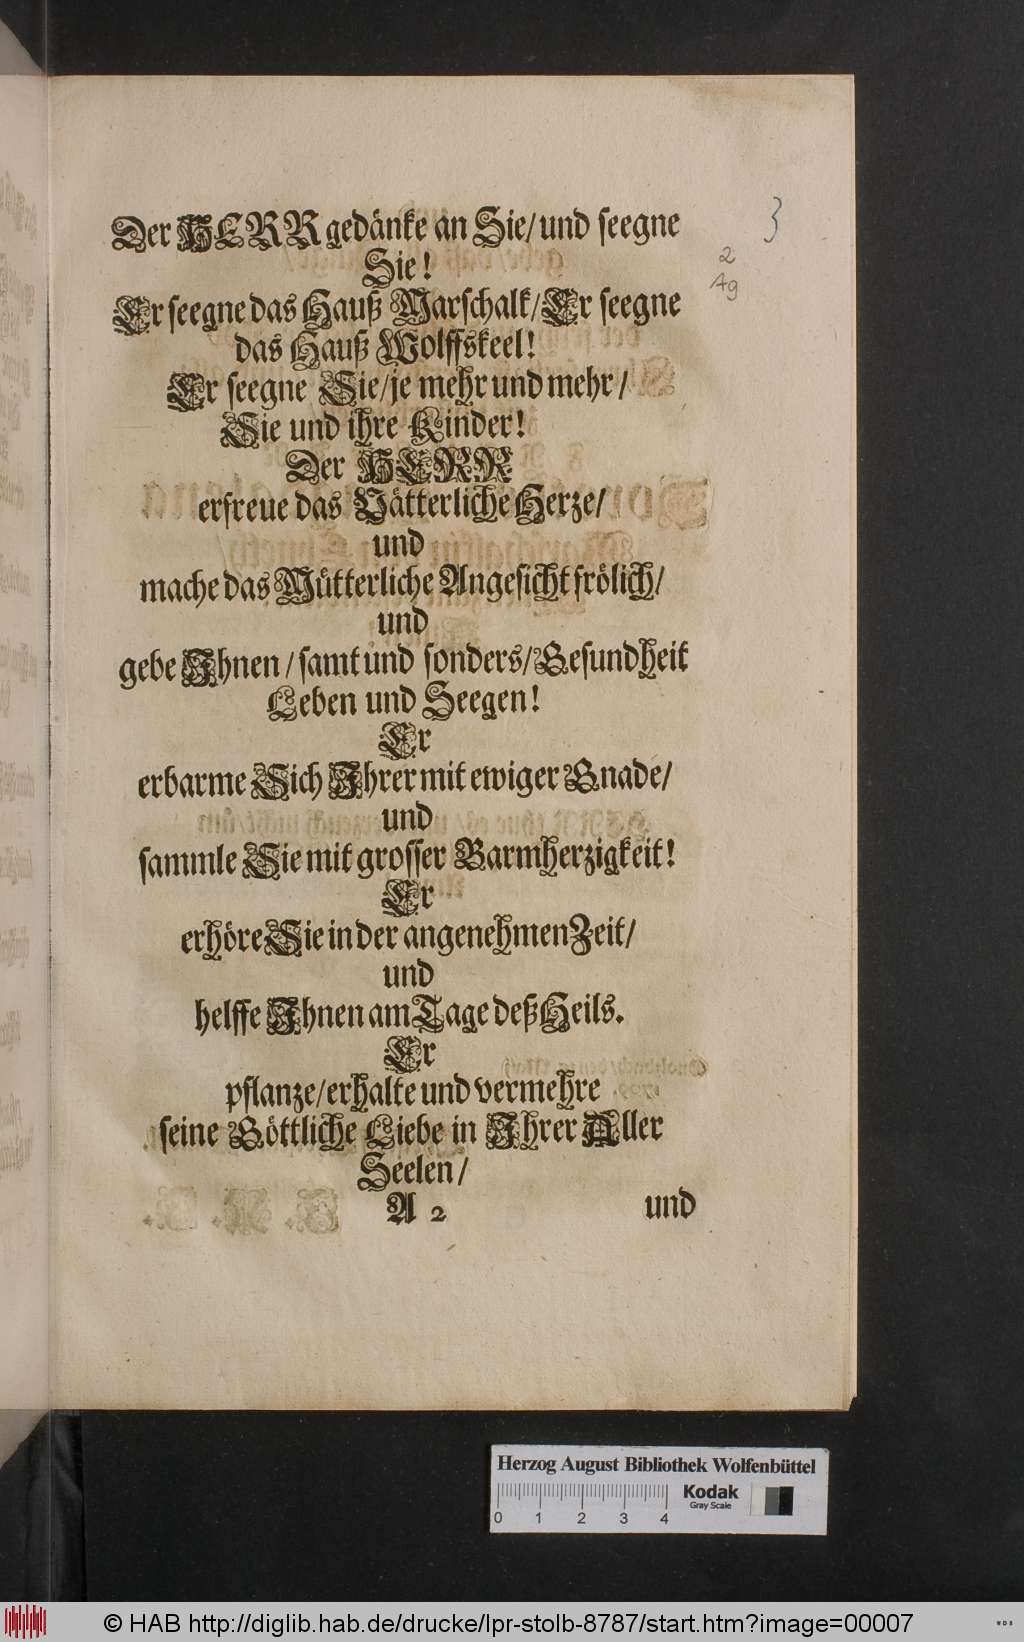 Der HERR gedänke an Sie/ und seegne
Sie!
Er seegne das Hauß Marschalk/ Er seegne
das Hauß Wolffskeel!
Er seegne Sie/ je mehr und mehr/
Sie und ihre Kinder!
Der HERR
erfreue das Vätterliche Herze/
und
mache das Mütterliche Angesicht frölich/
und
gebe Ihnen/ samt und sonders/ Gesundheit
Leben und Seegen!
Er
erbarme Sich Ihrer mit ewiger Gnade/
und
sammle Sie mit grosser Barmherzigkeit!
Er
erhöre Sie in der angenehmen Zeit/
und
helffe Ihnen am Tage deß Heils.
Er
pflanze/ erhalte und vermehre
seine Göttliche Liebe in Ihrer Aller
Seelen/
A 2 und
3
2
Ag
Herzog August Bibliothek Wolfenbüttel
Kodak
Gray Scale
0 1 2 3 4
© HAB http://diglib.hab.de/drucke/lpr-stolb-8787/start.htm?image=00007